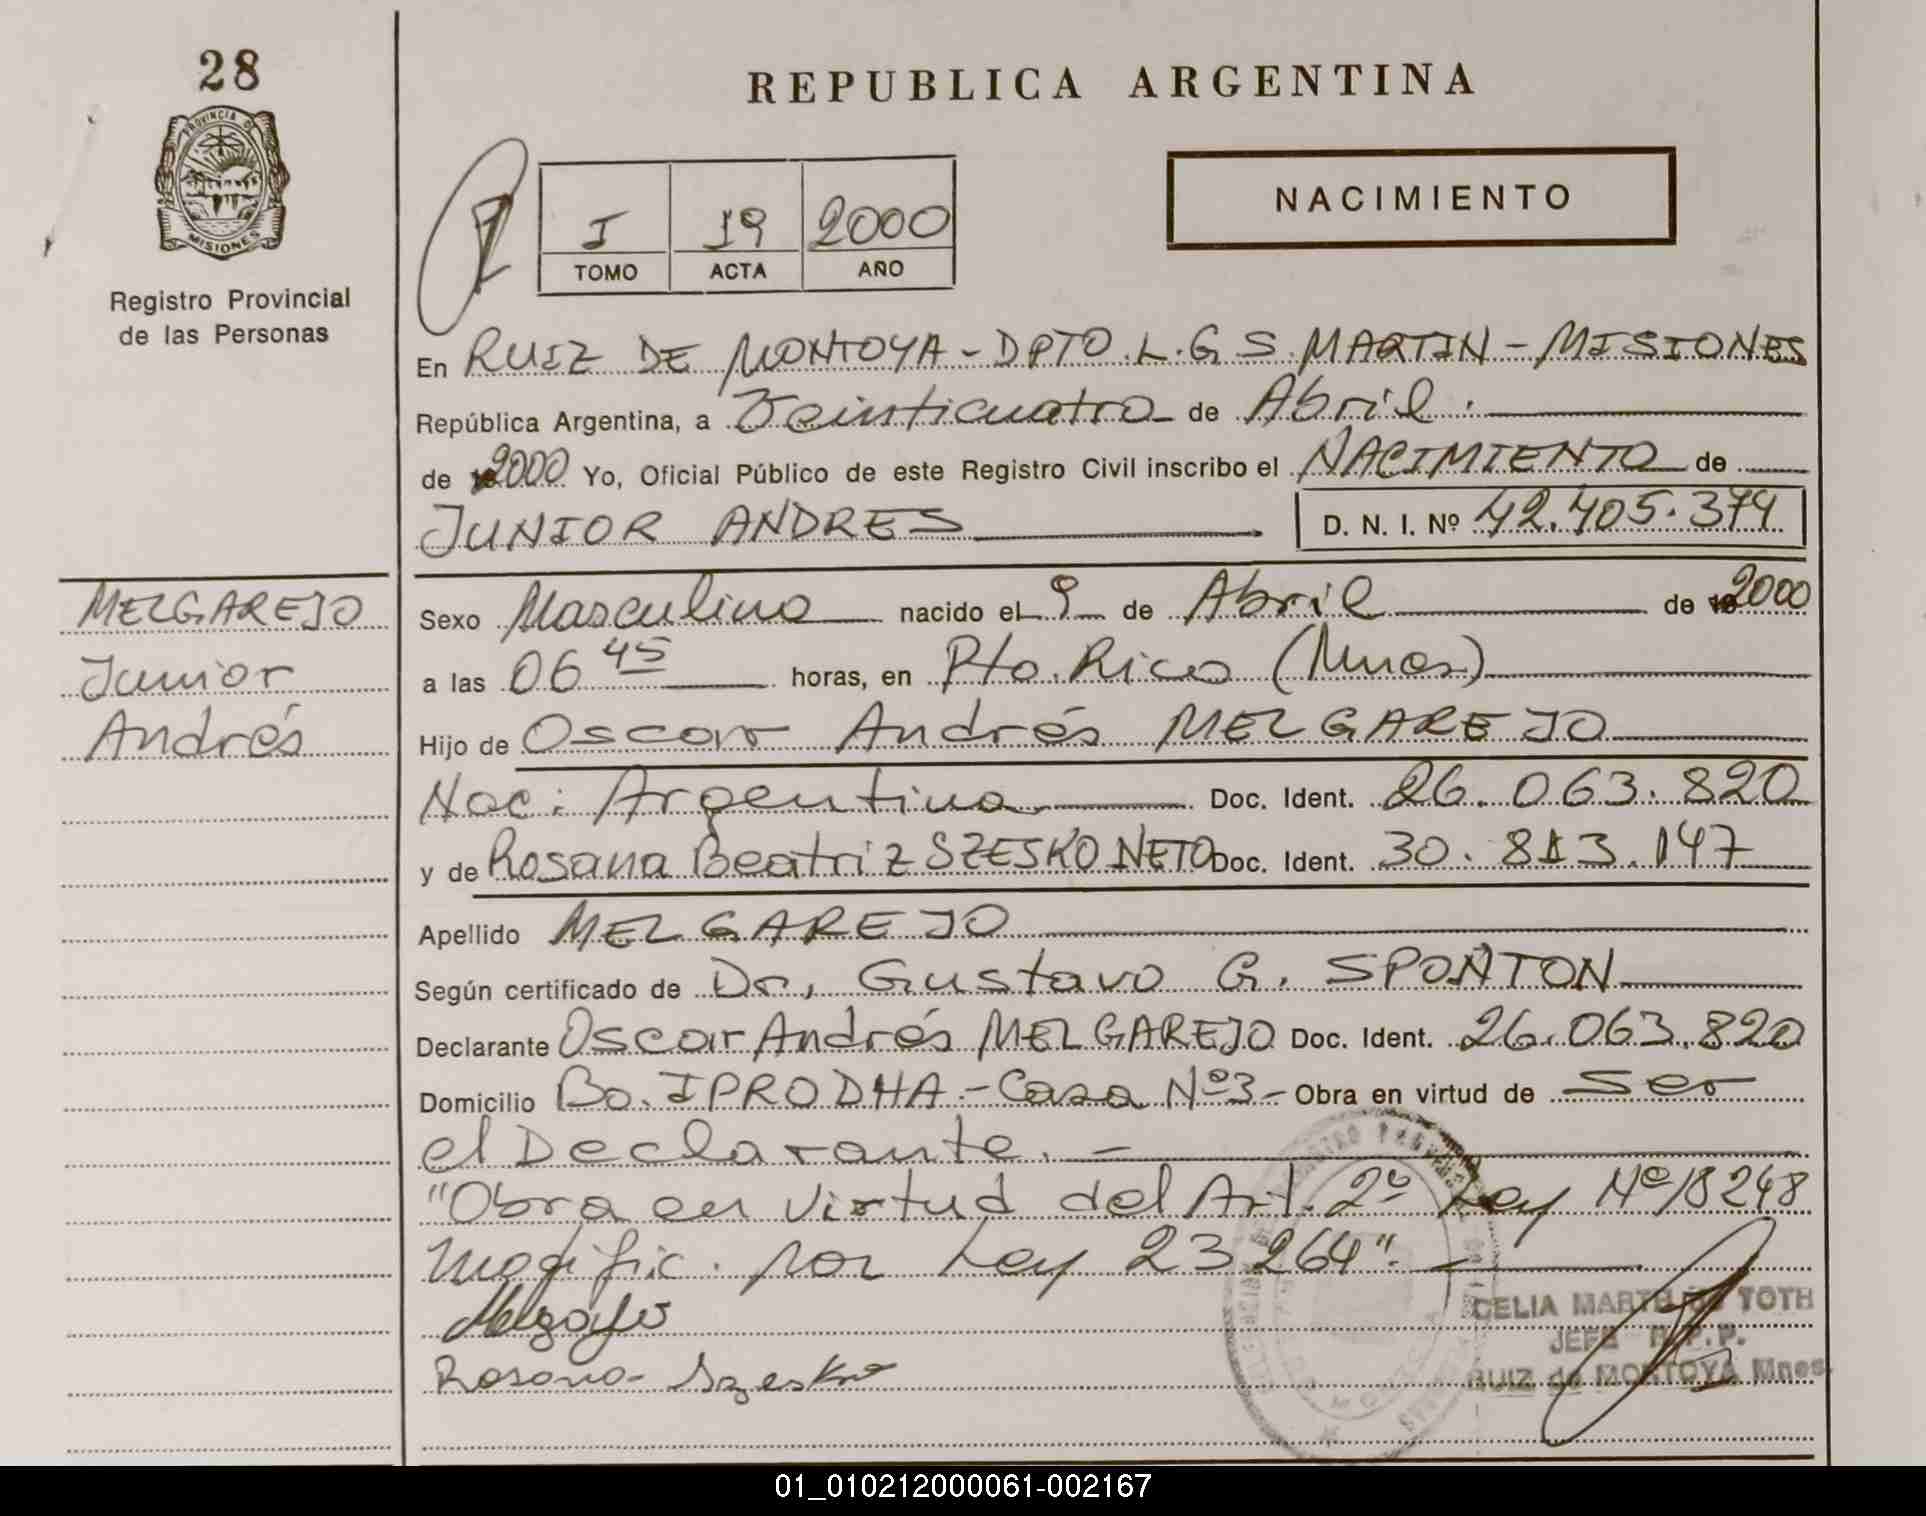 28
PROVINCIA DE
MISIONES
Registro Provincial
de las Personas
REPUBLICA ARGENTINA
I 19 2000
TOMO ACTA AÑO
NACIMIENTO
En RUIZ DE MONTOYA - DPTO. L. G. S. MARTIN - MISIONES
República Argentina, a Veinticuatro de Abril.
de 2000 Yo, Oficial Público de este Registro Civil inscribo el NACIMIENTO de
JUNIOR ANDRES D. N. I. Nº 42.405.374
MELGAREJO
Junior
Andrés
Sexo Masculino nacido el 9 de Abril de 2000
a las 06 45 horas, en Pto. Rico (Mnes.)
Hijo de Oscar Andrés MELGAREJO
Nac: Argentina Doc. Ident. 26.063.820
y de Rosana Beatriz SZESKO NETO Doc. Ident. 30.813.147
Apellido MELGAREJO
Según certificado de Dr. Gustavo G. SPONTON
Declarante Oscar Andrés MELGAREJO Doc. Ident. 26.063.820
Domicilio Bo. IPRODHA - Casa Nº 3 - Obra en virtud de ser
el Declarante. -
"Obra en virtud del Art. 2º Ley Nº 18248
modific. por Ley 23264". -
Rosana Szesko
CELIA MARTA DE TOTH
JEFE R.P.P.
RUIZ de MONTOYA Mnes.
01_010212000061-002167